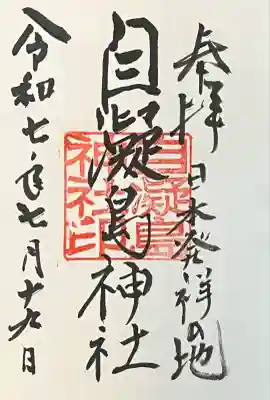 奉拝 日本発祥の地
自凝島神社
自凝島神社印
令和七年七月十九日